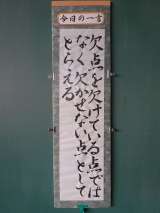 今日の一言
欠点を欠けている点では
なく欠かせない点として
とらえる